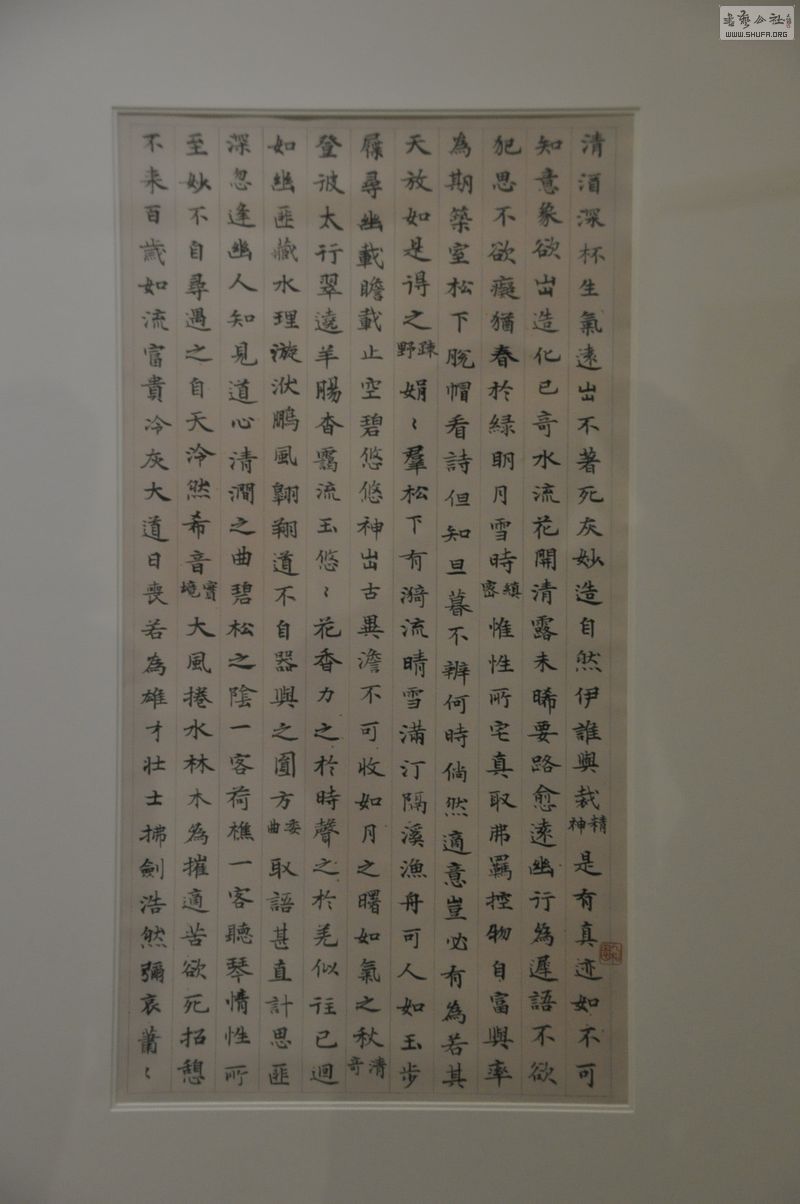 清酒深杯生氣遠出不著死灰妙造自然伊誰與裁精神是有真迹如不可
知意象欲出造化已奇水流花開清露未晞要路愈遠幽行為遲語不欲
犯思不欲癡猶春於綠明月雪時縝密惟性所宅真取弗羈控物自富與率
為期築室松下脫帽看詩但知旦暮不辨何時倘然適意豈必有為若其
天放如是得之疎野娟〻羣松下有漪流晴雪滿汀隔溪漁舟可人如玉步
屧尋幽載瞻載止空碧悠悠神出古異澹不可收如月之曙如氣之秋清奇
登彼太行翠遶羊腸杳靄流玉悠〻花香力之於時聲之於羌似往已迴
如幽匪藏水理漩洑鵬風翱翔道不自器與之圓方委曲取語甚直計思匪
深忽逢幽人知見道心清澗之曲碧松之陰一客荷樵一客聽琴情性所
至妙不自尋遇之自天泠然希音實境大風捲水林木為摧適苦欲死招憩
不来百歲如流富貴冷灰大道日喪若為雄才壯士拂劍浩然彌哀蕭〻
書藝公社
WWW.SHUFA.ORG